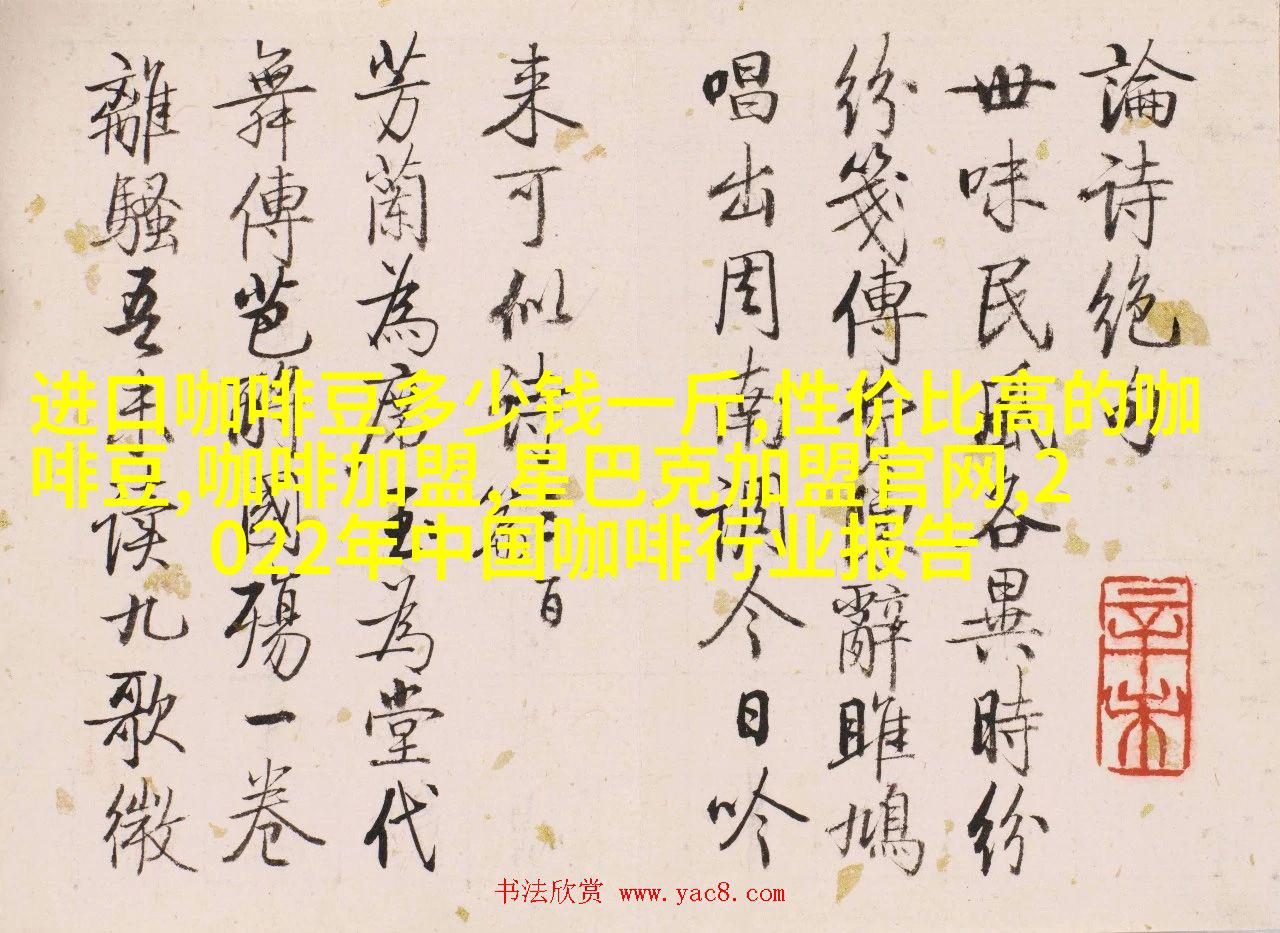 論诗絶句
世味民風各異時紛
紛箋傳辭雎鳩
唱出周南調今日吟
来可似诗百
芳蘭為席玉為堂代
舞傳芭酹國殤一卷
離騷吾未读九歌微
进口咖啡豆多少钱一斤,性价比高的咖
啡豆,咖啡加盟,星巴克加盟官网,2
022年中国咖啡行业报告
书法欣赏 www.yac8.com